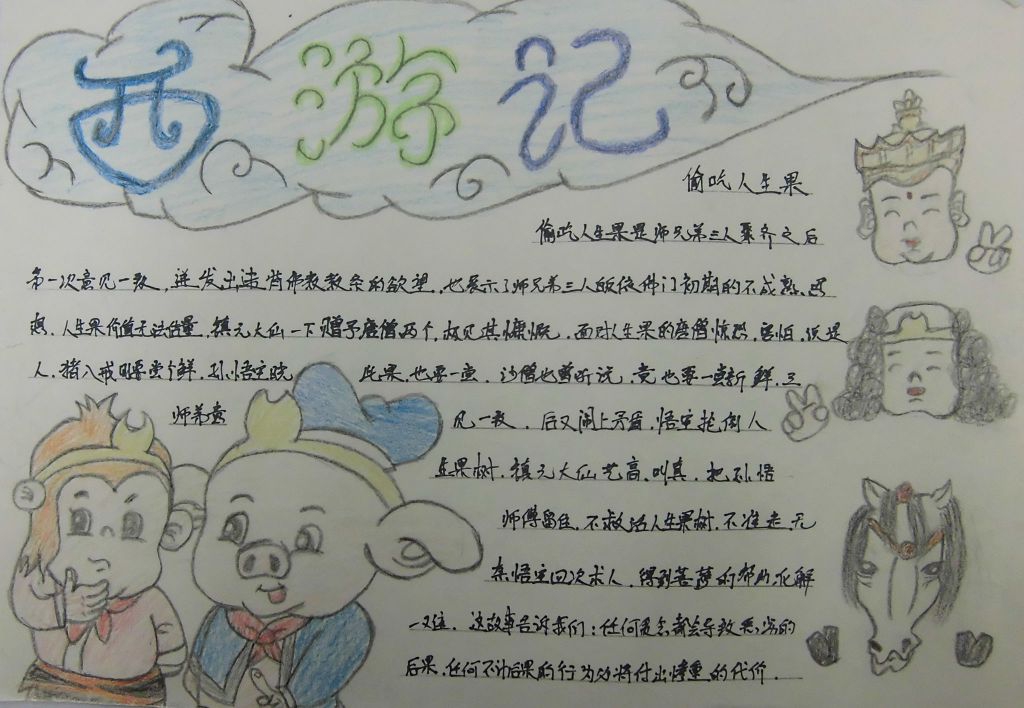 西游记
偷吃人生果
偷吃人生果是师兄弟三人聚齐之后
第一次意见一致,迸发出违背佛教教条的欲望,也展示了师兄弟三人皈依佛门初期的不成熟
人生果价值无法估量,镇元大仙一下赠予唐僧两个,极见其慷慨,面对人生果的唐僧惊愁,害怕,说是
人,猪八戒要尝个鲜,孙悟空晓 此果,也要一尝,沙僧也曾听说,竟也要一尝新鲜,三
师弟意 见一致,后又闹上矛盾,悟空推倒人
生果树,镇元大仙艺高,叫真,把孙悟
师傅留住,不救活人生果树,不准走,无
奈悟空四次求人,得到菩萨的帮助化解
一难,这故事告诉我们:任何恶念都会导致恶劣的
后果,任何不计后果的行为必将付出惨重的代价.